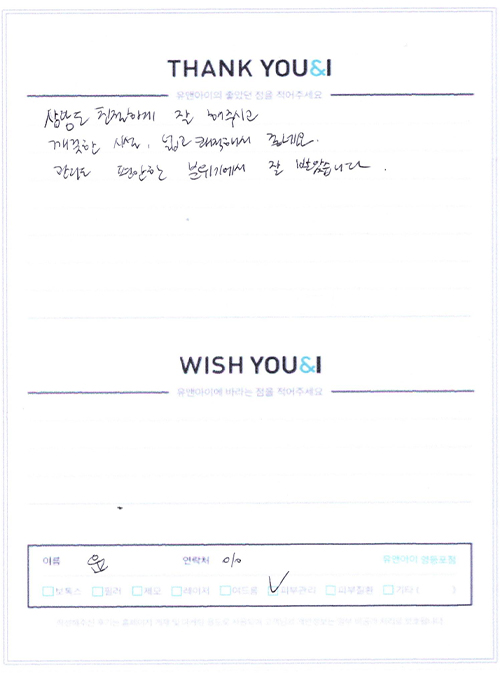 THANK YOU&I
유앤아이의 좋았던 점을 적어주세요
상담도 친절하게 잘 해주시고
깨끗한 시설, 넓고 쾌적해서 좋네요.
관리도 편안한 분위기에서 잘 받았습니다.
WISH YOU&I
유앤아이에 바라는 점을 적어주세요
이름 윤 연락처 010 유앤아이 영등포점
보톡스 필러 제모 레이저 여드름 ✓ 피부관리 피부질환 기타 ( )